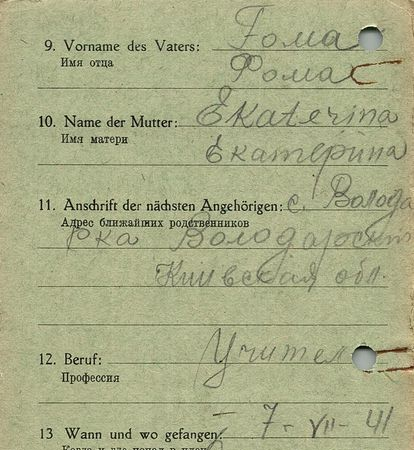 9. Vorname des Vaters: Гома
Имя отца Фома
10. Name der Mutter: Ekaterina
Имя матери Екатерина
11. Anschrift der nächsten Angehörigen: с. Волода
Адрес ближайших родственников
рка Володарского
Киевская обл.
12. Beruf: Учитель
Профессия
13 Wann und wo gefangen: 7-VII-41
Когда и где попал в плен